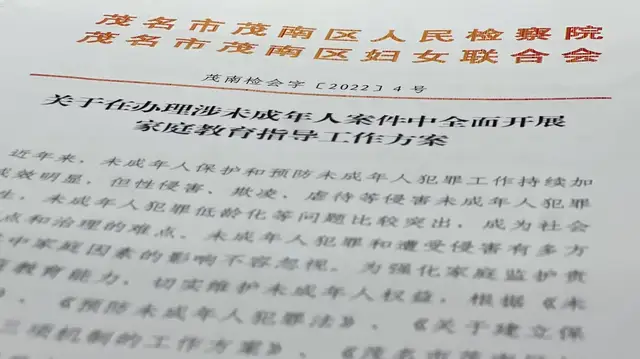 茂名市茂南区人民检察院
茂名市茂南区妇女联合会
茂南检会字〔2022〕4号
关于在办理涉未成年人案件中全面开展
家庭教育指导工作方案
近年来，未成年人保护和预防未成年人犯罪工作持续加
成效明显，但性侵害、欺凌、虐待等侵害未成年人犯罪
生，未成年人犯罪低龄化等问题比较突出，成为社会
点和治理的难点。未成年人犯罪和遭受侵害有多方
中家庭因素的影响不容忽视。为强化家庭监护责
教育能力，切实维护未成年人权益，根据《未
》、《预防未成年人犯罪法》、《关于建立保
三项机制的工作方案》、《茂名市茂南